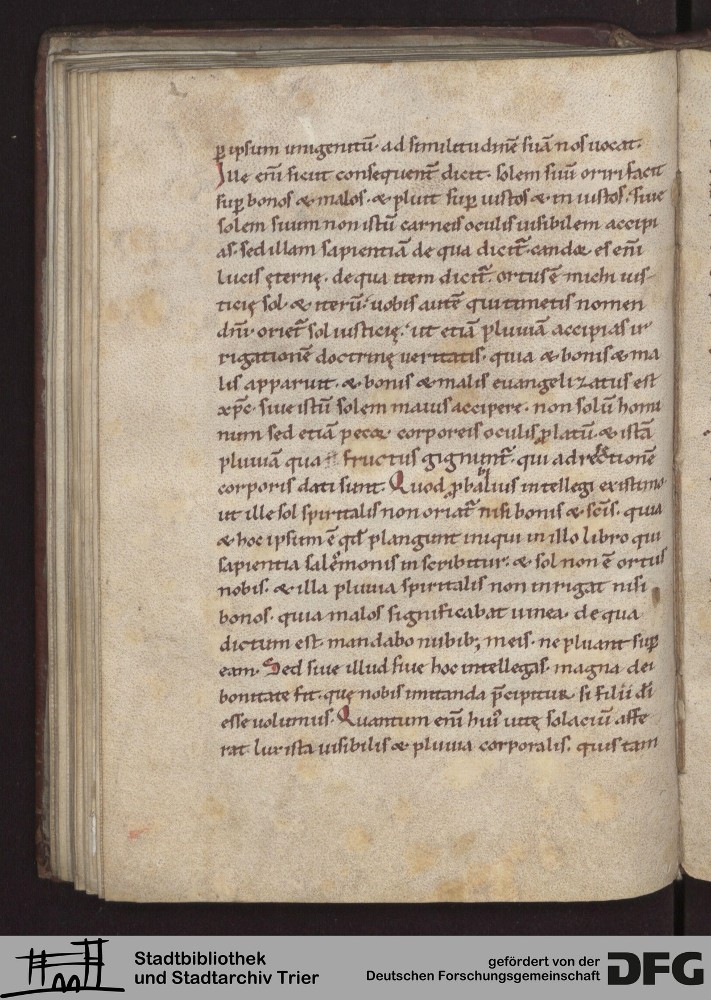 ꝑ ipsum unigenitū· ad similitudinē suā nos uocat·
Ille enī sicut consequent̄ dicit· solem suū oriri facit
suꝑ bonos & malos· & pluit suꝑ iustos & in iustos· siue
solem suum non istū carneis oculis uisibilem accipi
as· sed illam sapientiā de qua dicit̄· candor es enī
lucis ęternę· de qua item dicit̄· ortus ē michi ius
ticię sol· & iterū· uobis autē qui timetis nomen
dn̄i· oriet̄ sol iusticię· ut etiā pluuiā accipias ir
rigationē doctrinę ueritatis· quia & bonis & ma
lis apparuit· & bonis & malis euangelizatus est
xp̄c· siue istū solem mauis accipere· non solū homi
num sed etiā pecorum corporeis oculis ꝓlatū· & istā
pluuiā qua fructus gignunt̄· qui ad refectionē
corporis dati sunt· Quod ꝓbabilius intellegi existimo
ut ille sol spiritalis non oriat̄ nisi bonis & sc̄is· quia
& hoc ipsum ē qd̄ plangunt iniqui in illo libro qui
sapientia salemonis inscribitur· & sol non ē ortus
nobis· & illa pluuia spiritalis non inrigat nisi
bonos· quia malos significabat uinea· de qua
dictum est· mandabo nubib; meis· ne pluant suꝑ
eam· Sed siue illud siue hoc intellegas· magna dei
bonitate fit· quę nobis imitanda p̄cipitur si filii dī
esse uolumus· Quantum enī hui' uitę solaciū affe
rat lux ista uisibilis & pluuia corporalis· quis tam
Stadtbibliothek
und Stadtarchiv Trier
gefördert von der
Deutschen Forschungsgemeinschaft
DFG